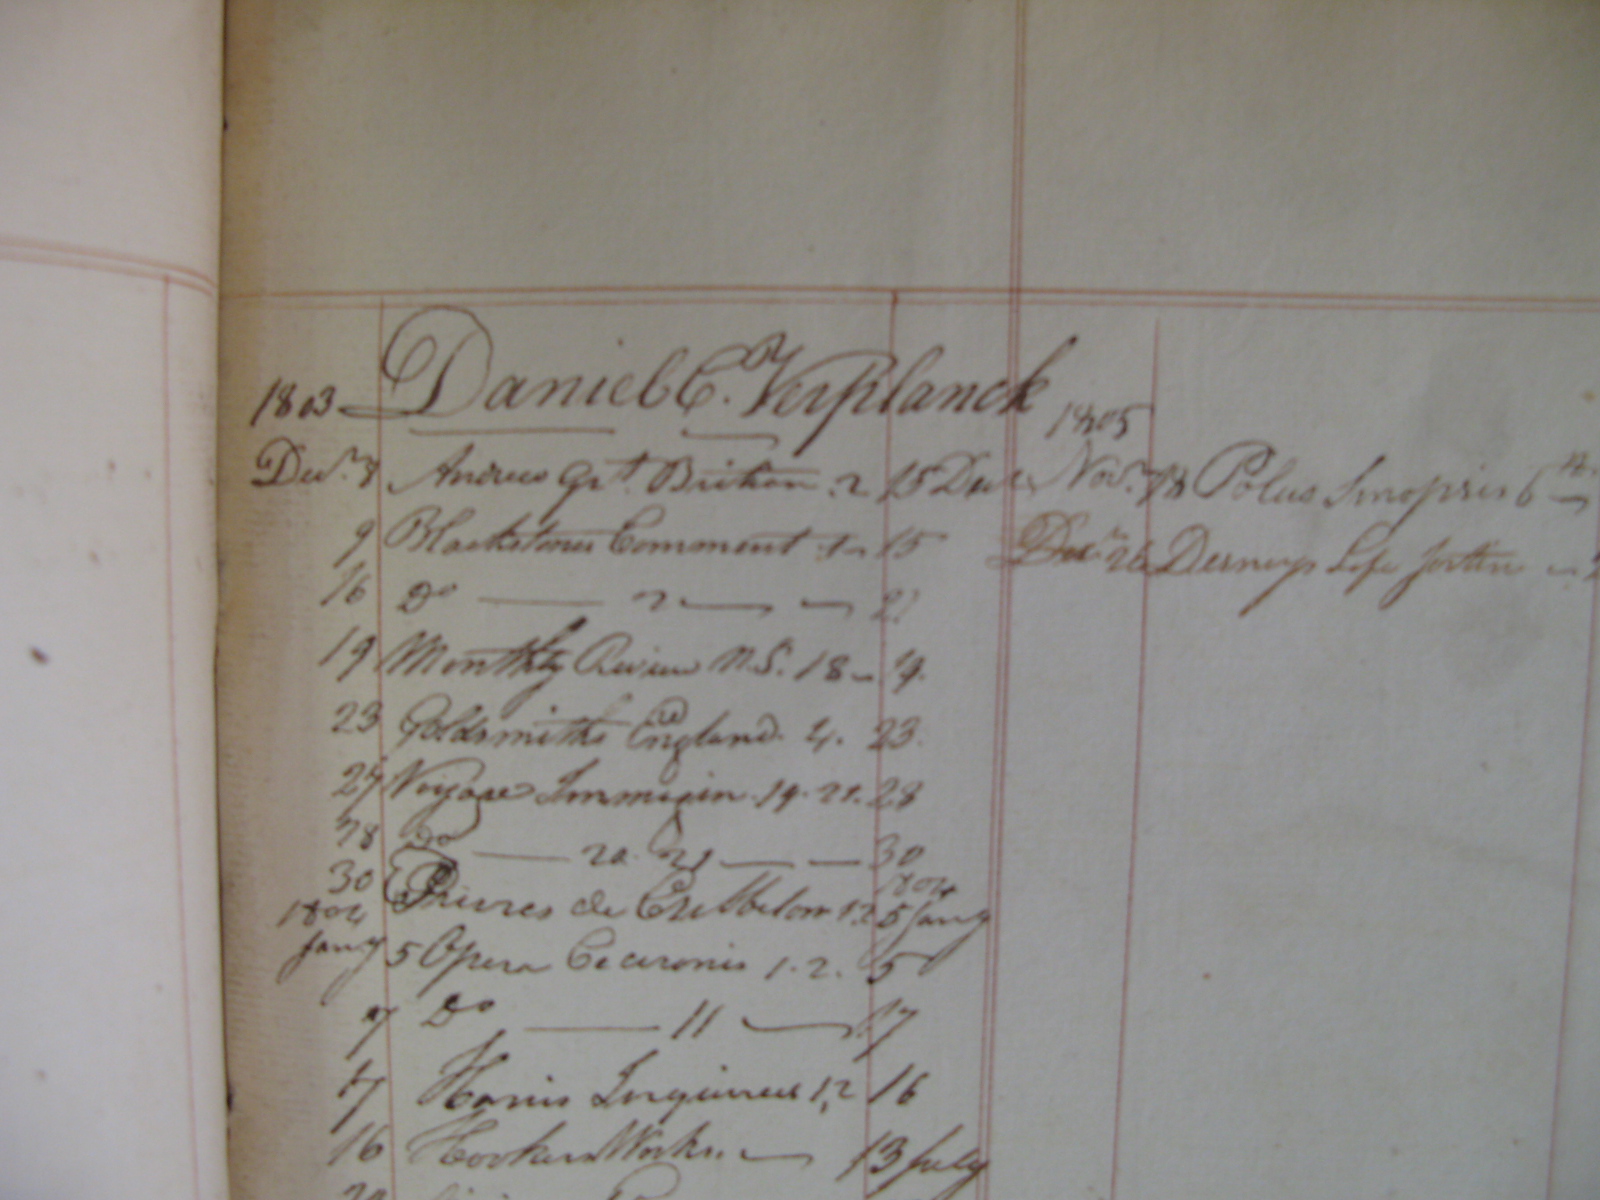 1803 Daniel C. Verplanck
Decr. 8 Andrews Grt. Britian 2 15 Decr
9 Blackstones Comment 1 15
16 Do 2
19 Monthly Review N.S. 18 19.
23 Goldsmiths England. 4. 23.
Voyage 19. 21. 28
28 Do 20. 21 30
30 de 1, 2 1804 5 Jany
1804
Jany 5 Opera Ciceronis 1. 2. 5
7 Do 11 17
17 Harris 1, 2 16
16 Hookers Works 13 July
1805
Novr. 18 Polus Sinopsis 6
Decr. 26 Life Jortin